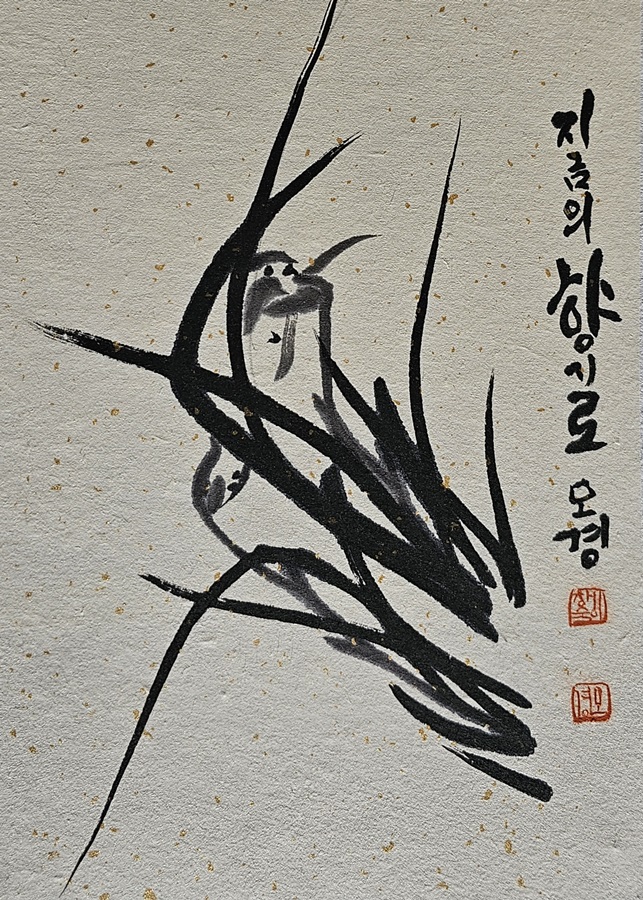 지금의 향기로 오경